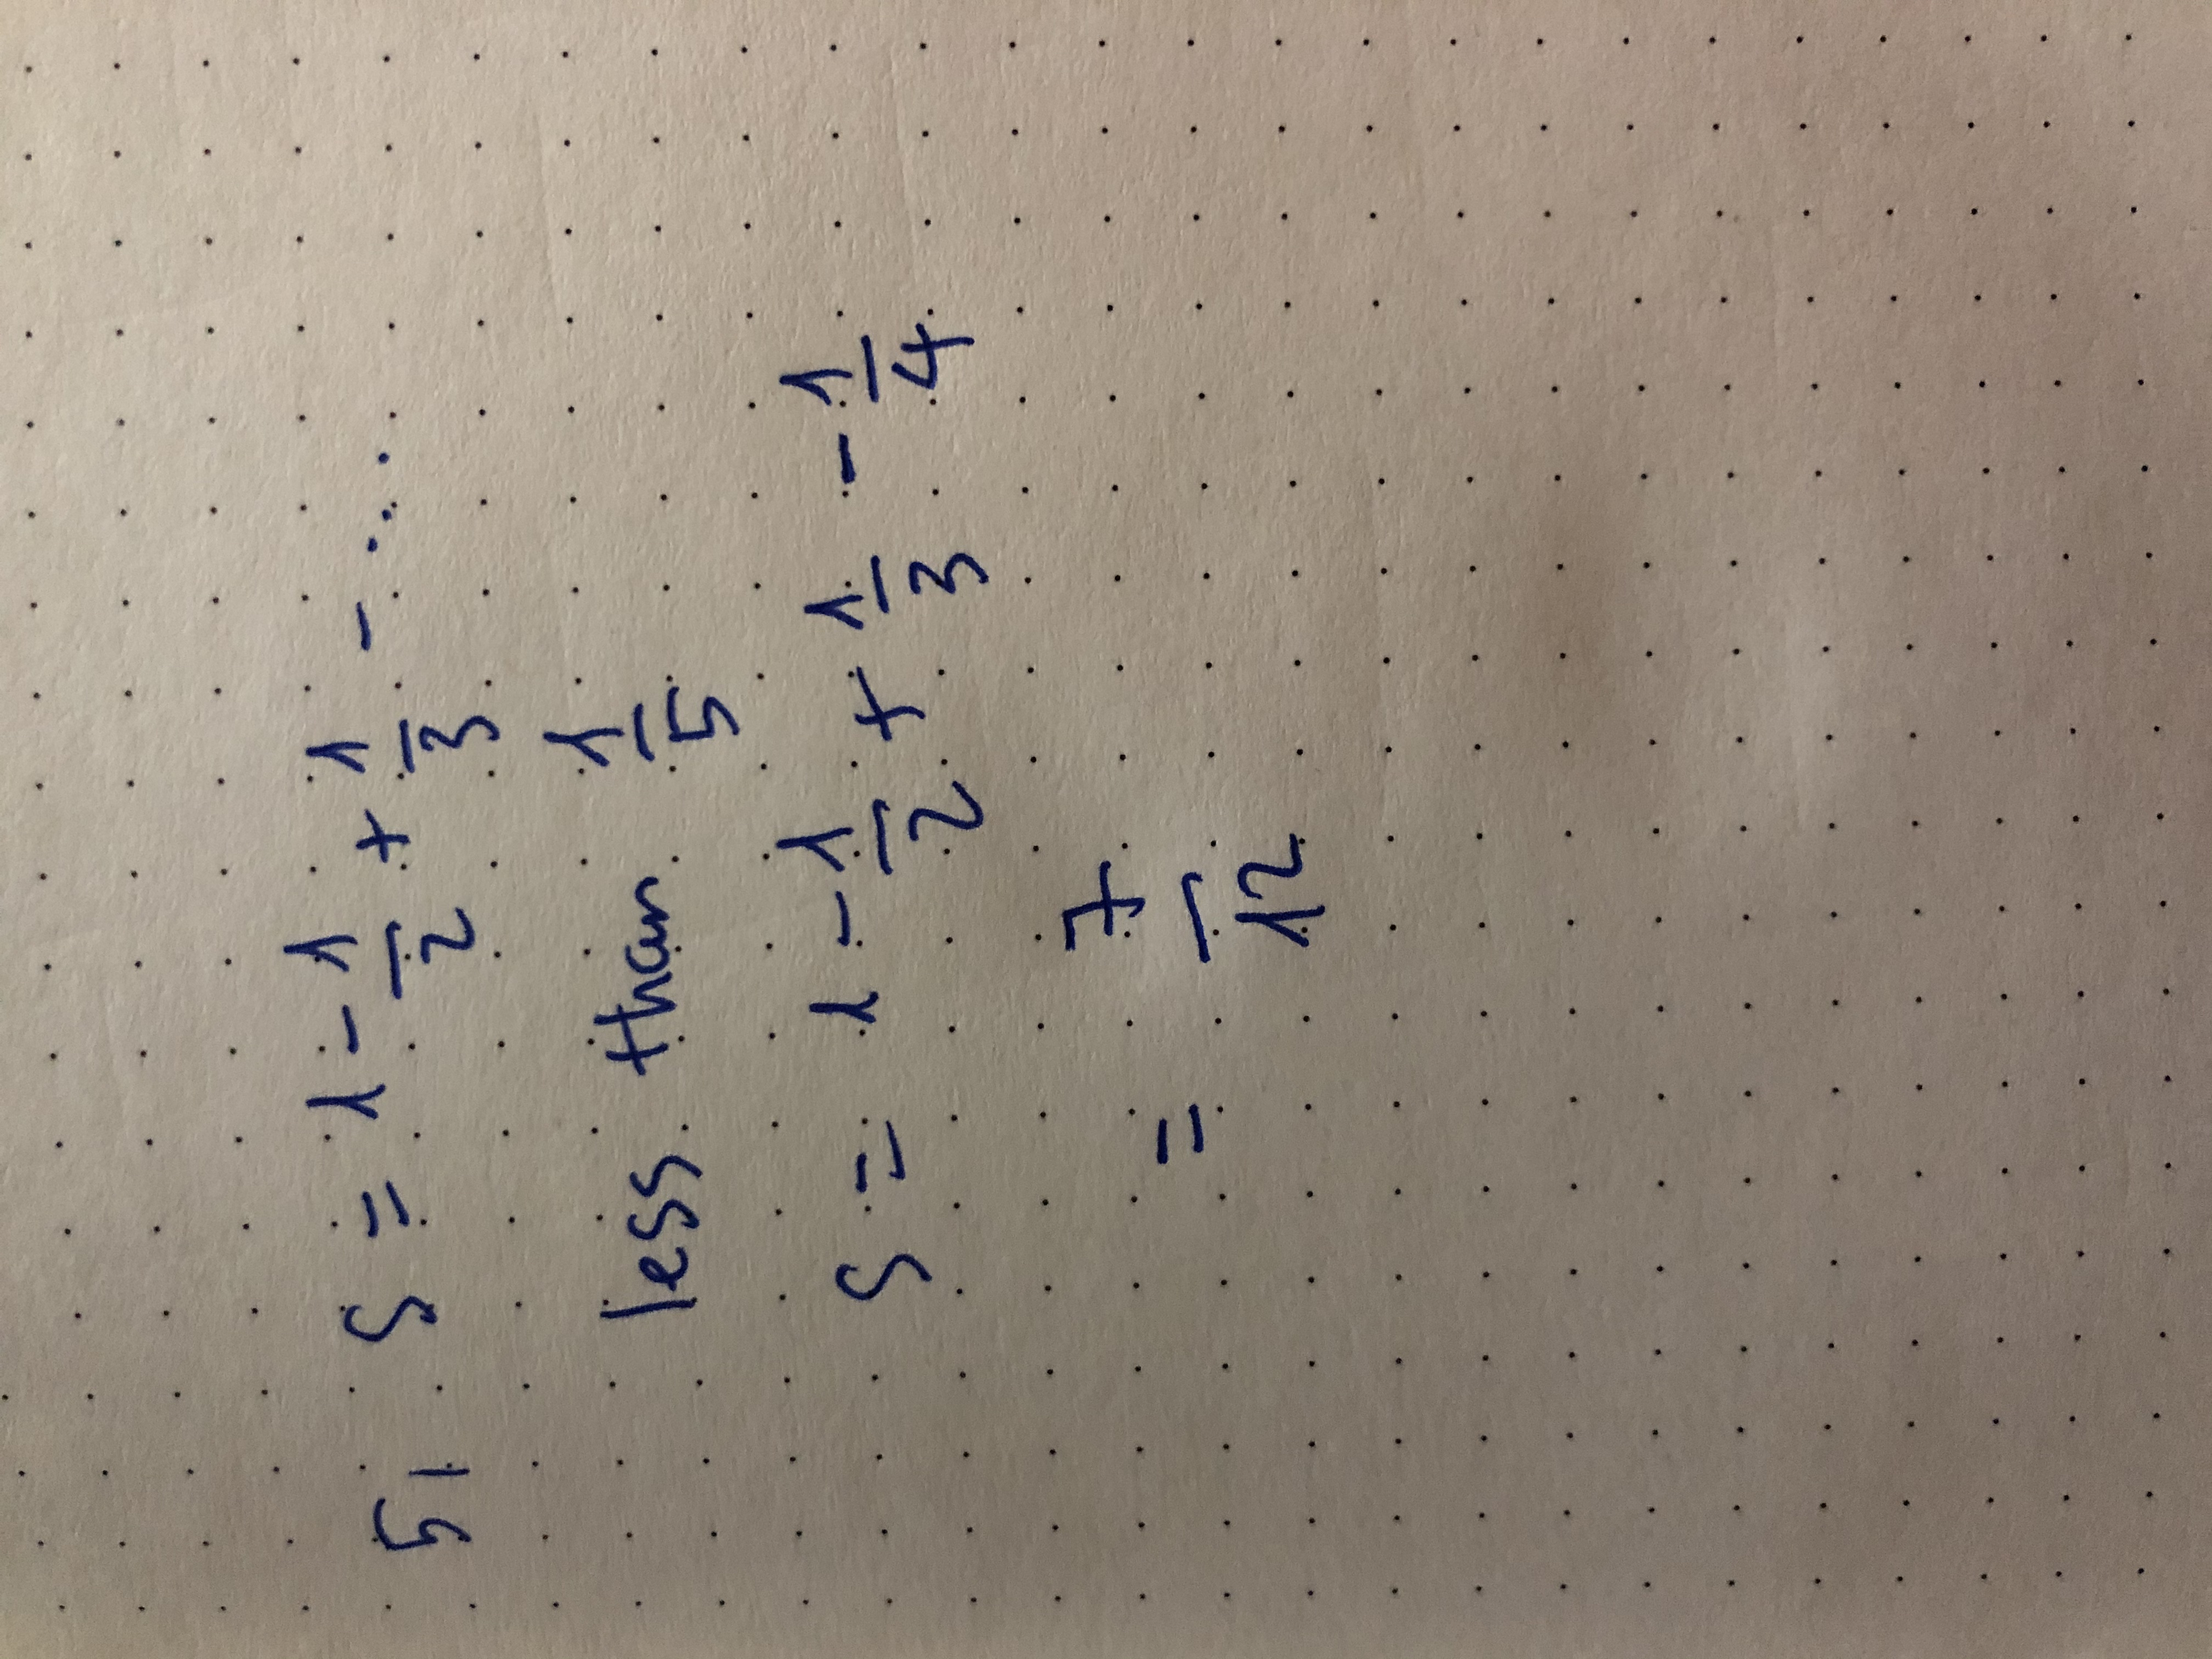 5, S = 1 - 1/2 + 1/3 - ...
less than 1/5
S = 1 - 1/2 + 1/3 - 1/4
= 7/12